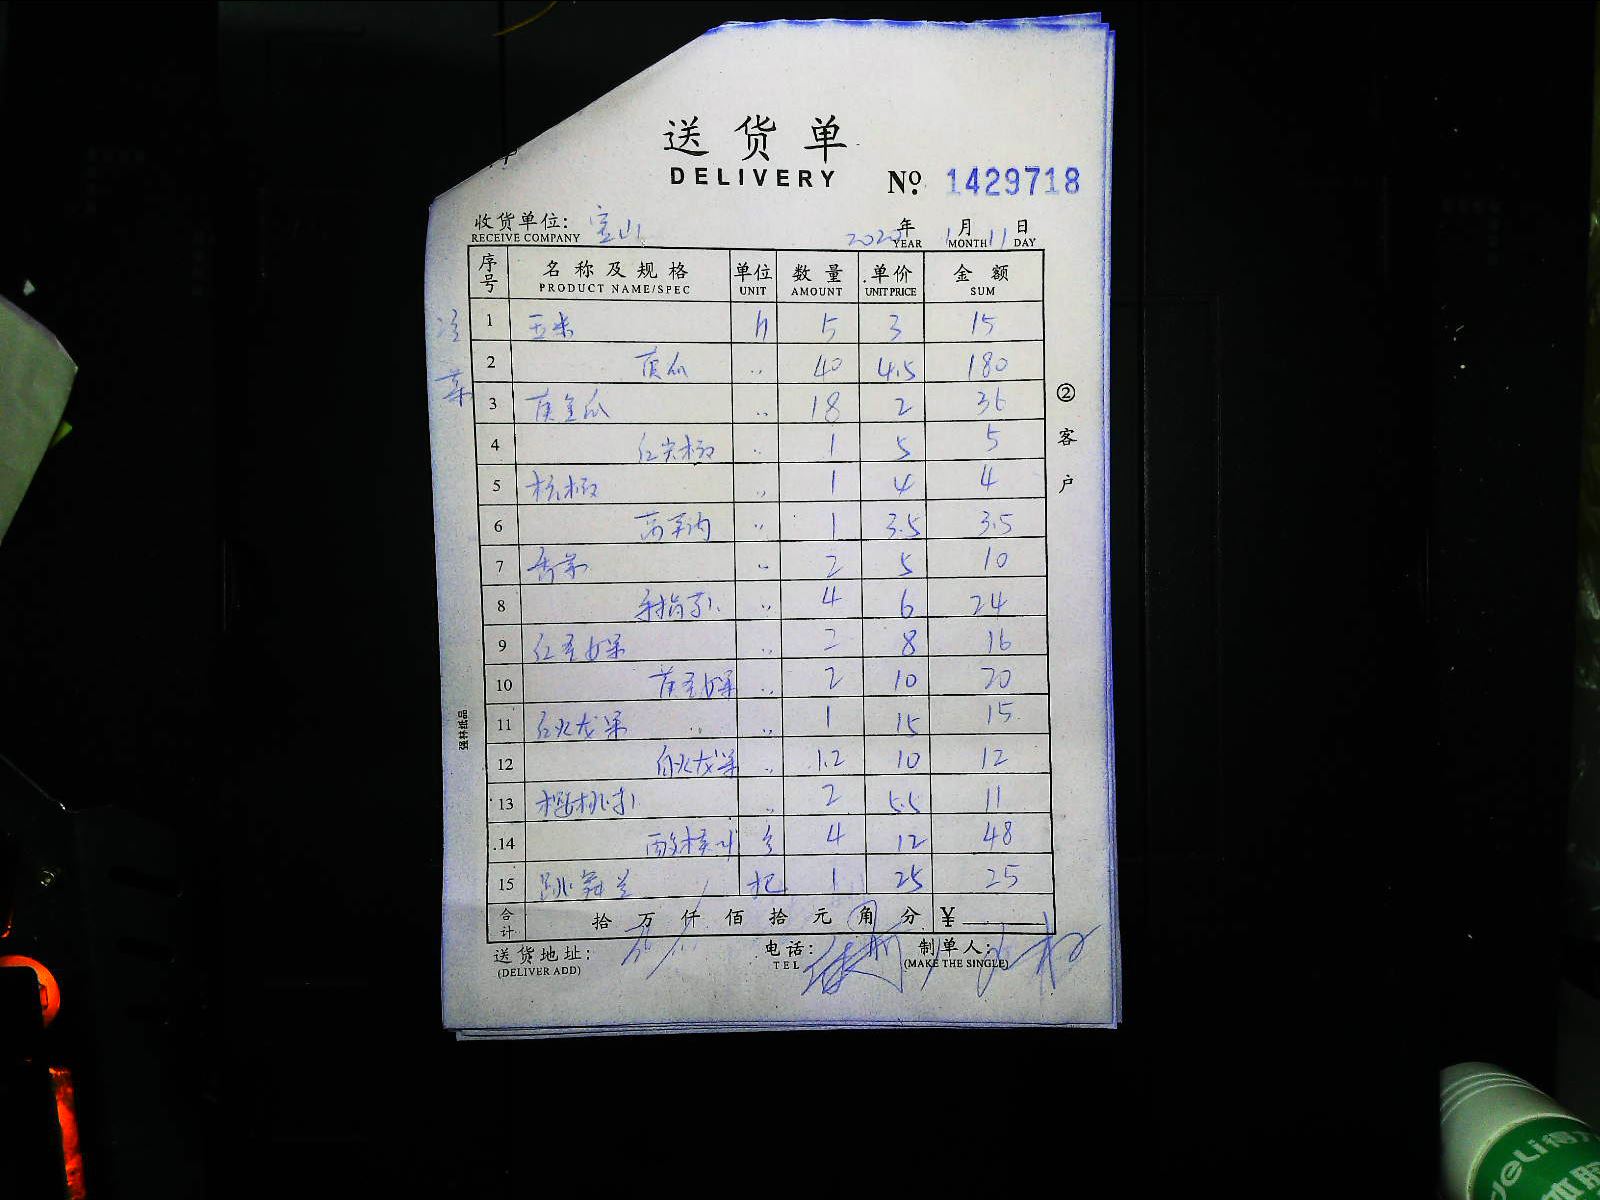 送货单
DELIVERY
No. 1429718
收货单位: 宝山 2020年 1月 11日
RECEIVE COMPANY YEAR MONTH DAY
序号 名称及规格 单位 数量 单价 金额
PRODUCT NAME/SPEC UNIT AMOUNT UNIT PRICE SUM
凉菜
1 玉米 斤 5 3 15
2 黄瓜 〃 40 4.5 180
3 黄金瓜 〃 18 2 36
4 红尖椒 〃 1 5 5
5 杭椒 〃 1 4 4
6 〃 1 3.5 3.5
7 香菜 〃 2 5 10
8 手指萝卜 〃 4 6 24
9 红圣女果 〃 2 8 16
10 黄圣女果 〃 2 10 20
11 红火龙果 〃 1 15 15
12 白火龙果 〃 1.2 10 12
13 樱桃萝卜 〃 2 5.5 11
14 4 12 48
15 跳舞兰 把 1 25 25
合计 拾 万 仟 佰 拾 元 角 分 ¥
送货地址: 电话: 制单人:
(DELIVER ADD) TEL (MAKE THE SINGLE)
②客户
强林纸品
deli得力